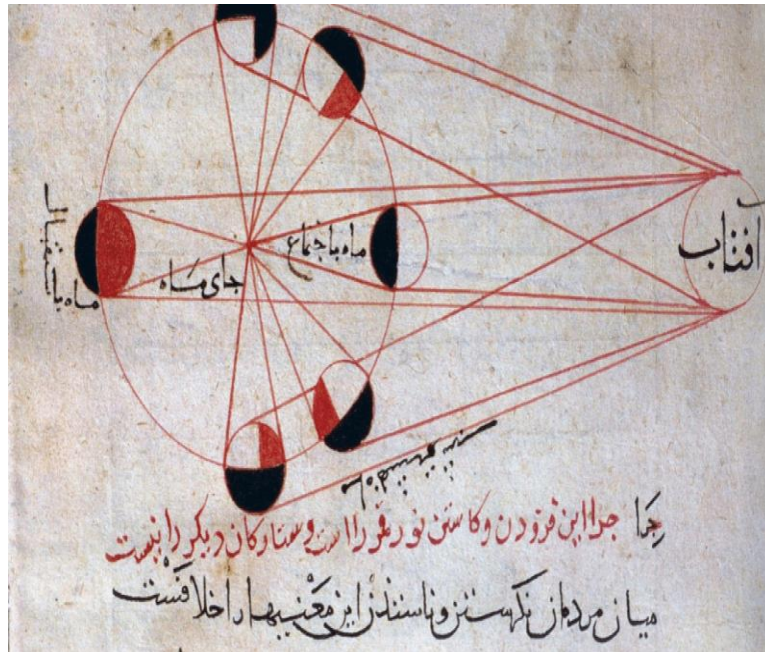 آفتاب
ماه باجتماع
جای ماه
ماه باستقبال
چرا جرا این فزودن و کاستن نور قمر را است و ستارکان دیکر را نیست
میان مردمان نکرستن این معنیها را خلافست